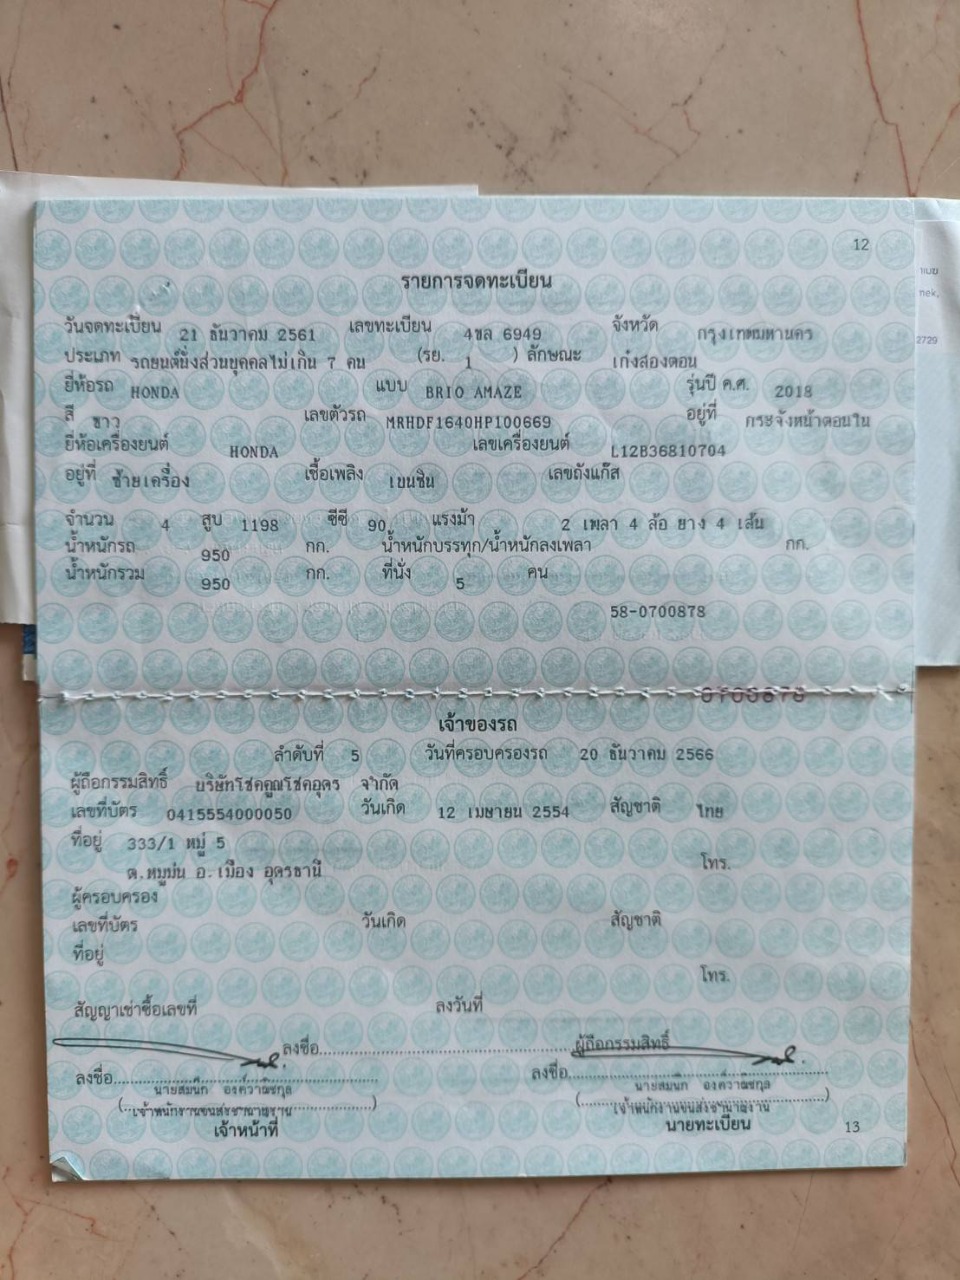 12
รายการจดทะเบียน
วันจดทะเบียน 21 ธันวาคม 2561 เลขทะเบียน 4ขล 6949 จังหวัด กรุงเทพมหานคร
ประเภท รถยนต์นั่งส่วนบุคคลไม่เกิน 7 คน (รย. 1 ) ลักษณะ เก๋งสองตอน
ยี่ห้อรถ HONDA แบบ BRIO AMAZE รุ่นปี ค.ศ. 2018
สี ขาว เลขตัวรถ MRHDF1640HP100669 อยู่ที่ กระจังหน้าตอนใน
ยี่ห้อเครื่องยนต์ HONDA เลขเครื่องยนต์ L12B36810704
อยู่ที่ ซ้ายเครื่อง เชื้อเพลิง เบนซิน เลขถังแก๊ส
จำนวน 4 สูบ 1198 ซีซี 90 แรงม้า 2 เพลา 4 ล้อ ยาง 4 เส้น
น้ำหนักรถ 950 กก. น้ำหนักบรรทุก/น้ำหนักลงเพลา กก.
น้ำหนักรวม 950 กก. ที่นั่ง 5 คน
58-0700878
0700878
เจ้าของรถ
ลำดับที่ 5 วันที่ครอบครองรถ 20 ธันวาคม 2566
ผู้ถือกรรมสิทธิ์ บริษัทโชคคูณโชคอุดร จำกัด
เลขที่บัตร 0415554000050 วันเกิด 12 เมษายน 2554 สัญชาติ ไทย
ที่อยู่ 333/1 หมู่ 5
ต.หมูม่น อ.เมือง อุดรธานี โทร.
ผู้ครอบครอง
เลขที่บัตร วันเกิด สัญชาติ
ที่อยู่
โทร.
สัญญาเช่าซื้อเลขที่ ลงวันที่
ลงชื่อ ผู้ถือกรรมสิทธิ์
ลงชื่อ ลงชื่อ
นายสมนึก นายสมนึก
(เจ้าพนักงานขนส่งชำนาญงาน) (เจ้าพนักงานขนส่งชำนาญงาน)
เจ้าหน้าที่ นายทะเบียน 13
nek,
2729